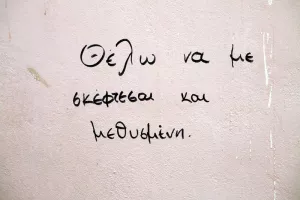 Θέλω να με
σκέφτεσαι και
μεθυσμένη.